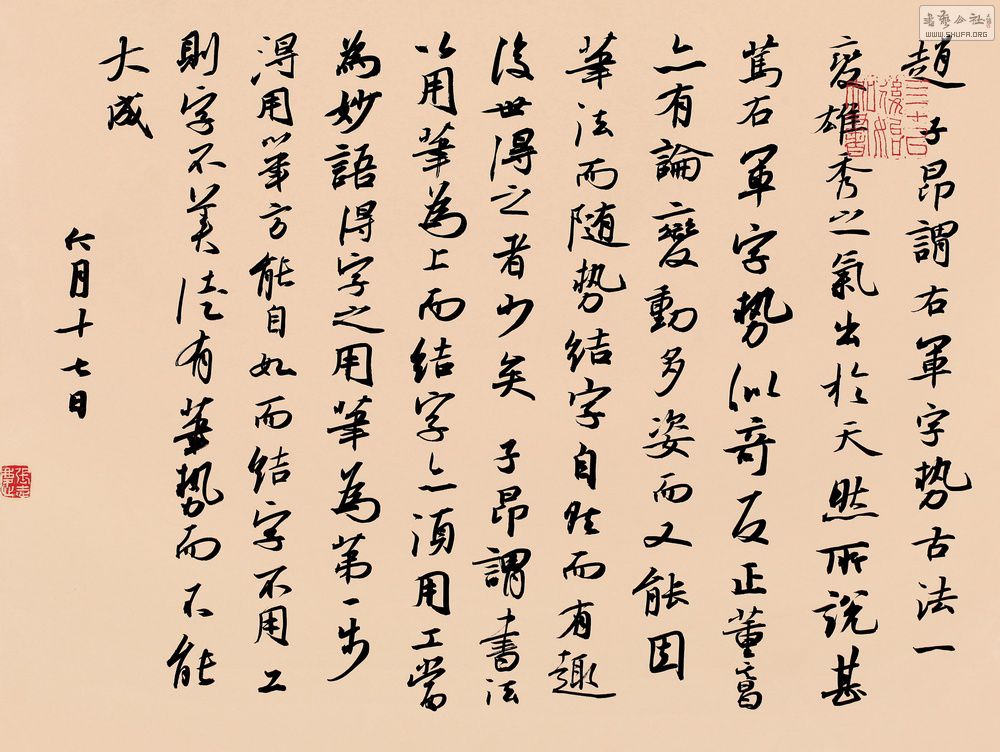 趙子昂謂右軍字勢古法一
變雄秀之氣出於天然所說甚
篤右軍字勢似奇反正董書
亦有論變動多姿而又能因
筆法而随勢結字自然而有趣
後世得之者少矣 子昂謂書法
以用筆為上而結字亦須用工當
為妙語得字之用筆為第一步
得用筆方能自如而結字不用工
則字不美徒有筆勢而不能
大成
六月十七日
書藝公社
WWW.SHUFA.ORG